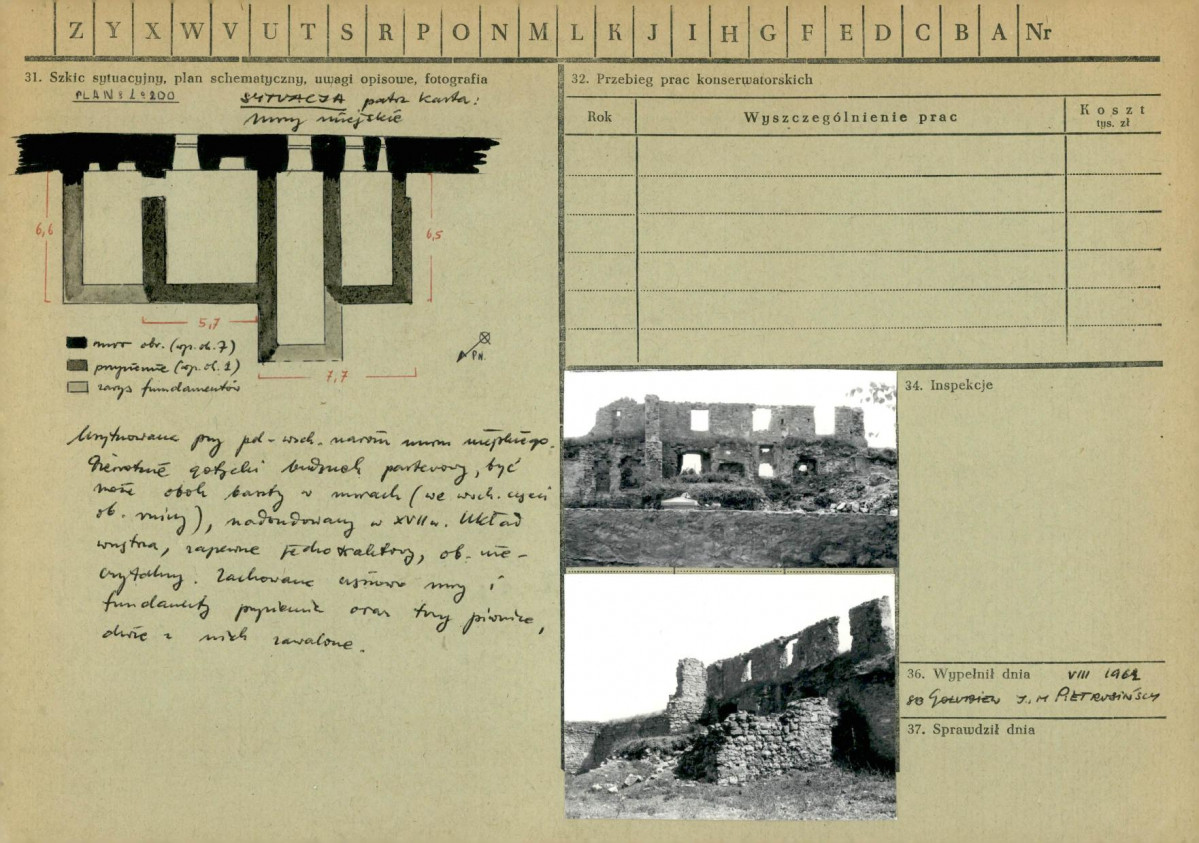 Z Y X W V U T S R P O N M L K J I H G F E D C B A Nr
31. Szkic sytuacyjny, plan schematyczny, uwagi opisowe, fotografia
PLAN 1:200
SYTUACJA patrz karta:
mury miejskie
6,6
6,5
5,7
7,7
PN.
mur obr. (wp. ok. 7)
przyziemie (wp. ok. 1)
zarys fundamentów
Usytuowana przy płd-wsch. narożu muru miejskiego.
Pierwotnie gotycki budynek parterowy, być
może obok baszty w murach (we wsch. części
ob. ruiny), nadbudowany w XVII w. Układ
wnętrza, zapewne jednotraktowy, ob. nie-
czytelny. Zachowane częściowo mury i
fundamenty przyziemia oraz trzy piwnice,
dwie z nich zawalone.
32. Przebieg prac konserwatorskich
Rok
Wyszczególnienie prac
Koszt
tys. zł
34. Inspekcje
36. Wypełnił dnia VIII 1962
J. M PIETRUSIŃSCY
37. Sprawdził dnia